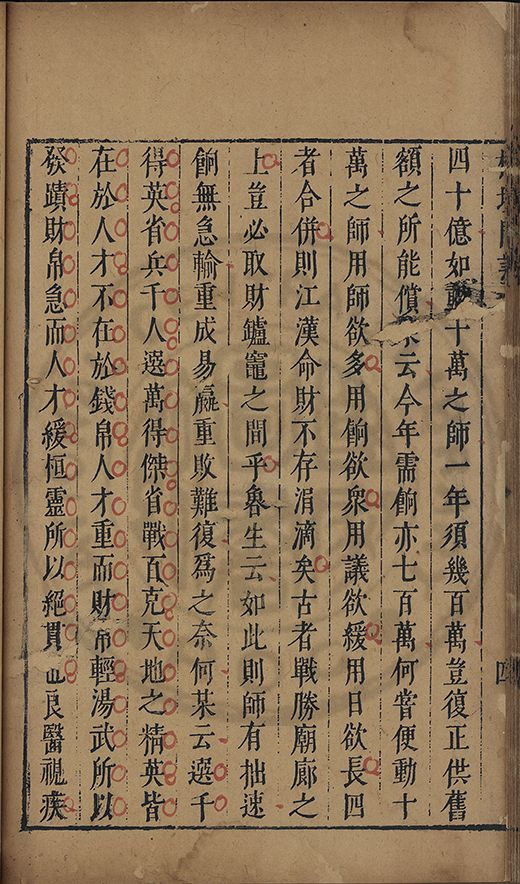 四十億如動十萬之師一年須幾百萬豈復正供舊
額之所能償云今年需餉亦七百萬何嘗便動十
萬之師用師欲多用餉欲衆用議欲緩用日欲長四
者合併則江漢命財不存涓滴矣古者戰勝廟廊之
上豈必取財鑪竈之間乎魯生云如此則師有拙速
餉無急輸重成易羸重敗難復爲之奈何某云選千
得英省兵千人選萬得傑省戰百克天地之精英皆
在於人才不在於錢帛人才重而財帛輕湯武所以
發蹟財帛急而人才緩恒靈所以絕貫也良醫視疾